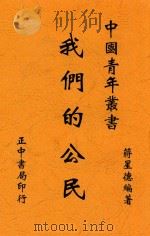 中國青年叢書
我們的公民
蔣星德編著
正中書局印行
www.toutianbook.com